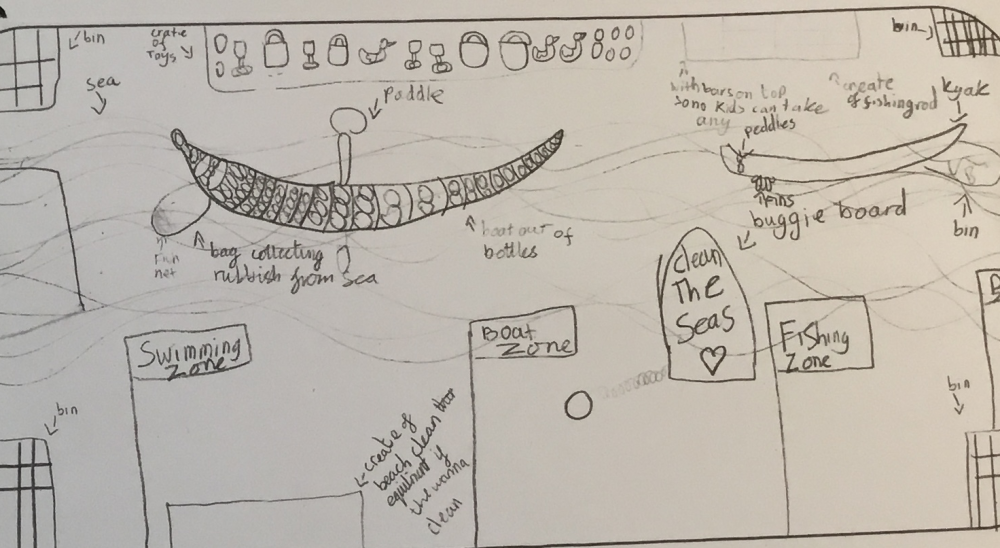 bin
crate
of
Toys
sea
Paddle
bin
with bars on top
so no kids can take
any
peddles
create
of fishingrod
kyak
fins
buggie board
bin
boat out of
bottles
bag collecting
rubbish from sea
net
clean
The
Seas
Swimming
Zone
Boat
Zone
Fishing
Zone
bin
bin
create of
beach clean
equitment if
wanna
clean